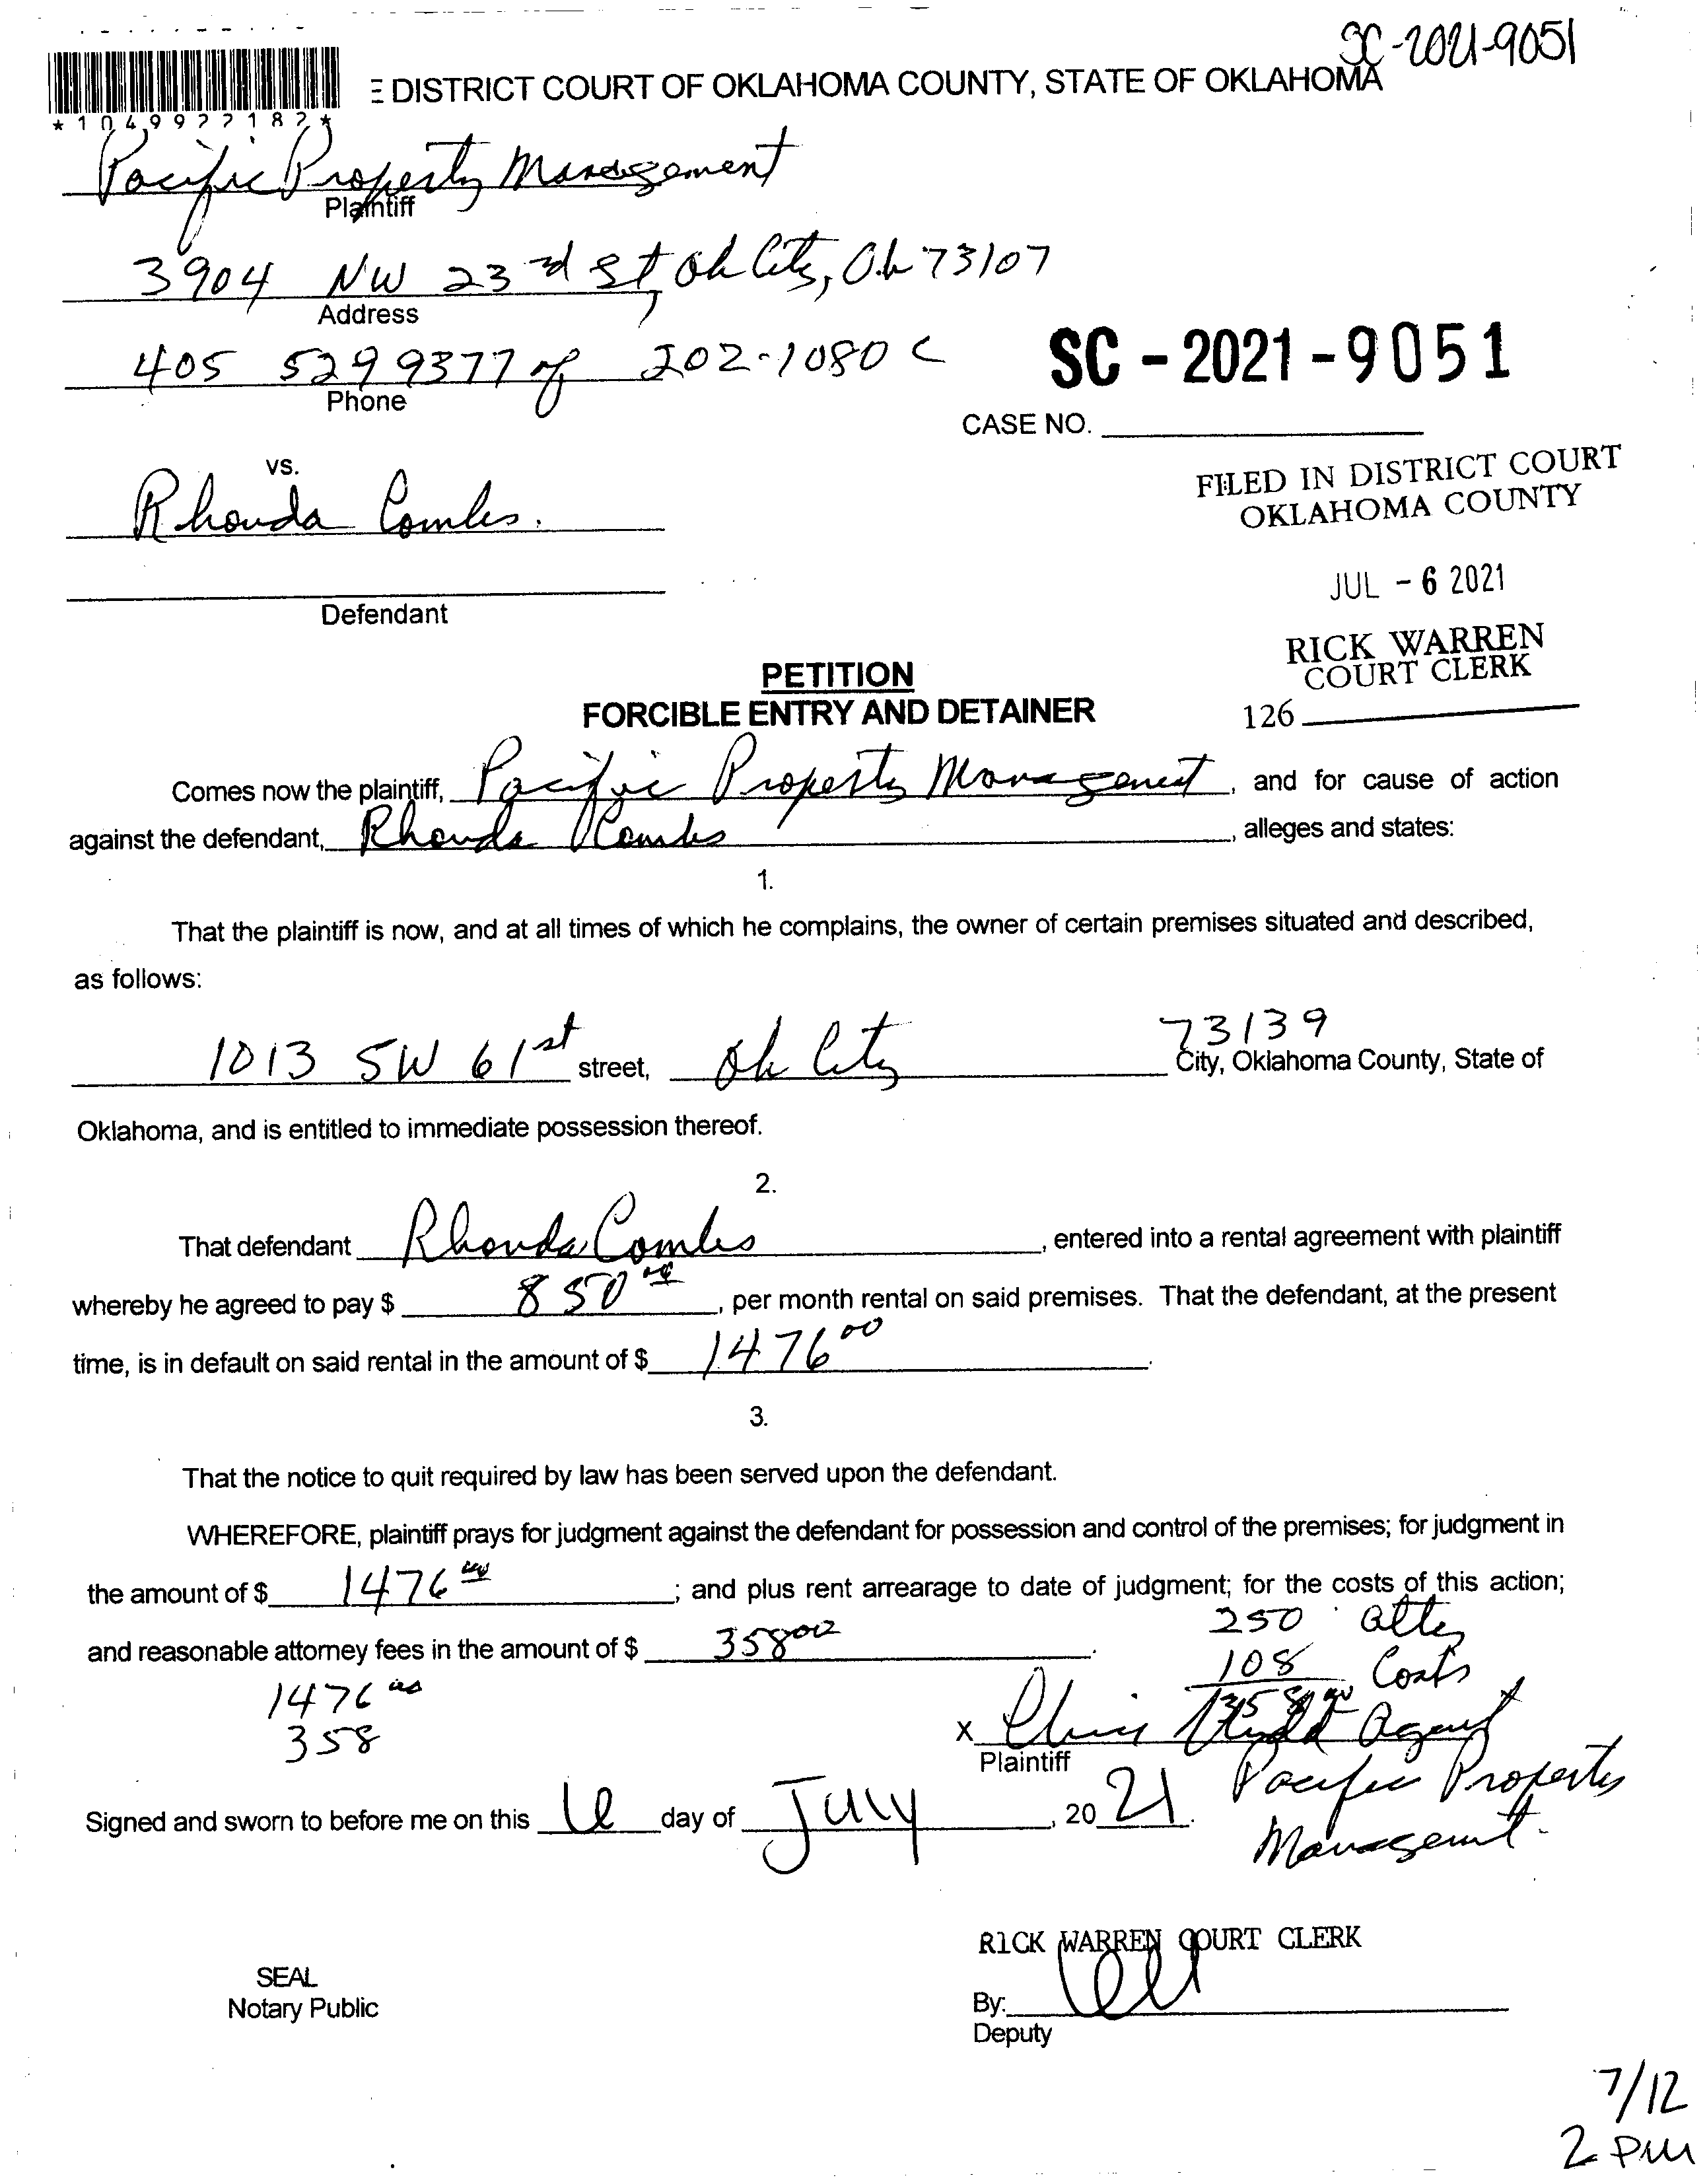 SC-2021-9051
E DISTRICT COURT OF OKLAHOMA COUNTY, STATE OF OKLAHOMA
*1049922182*
Pacific Property Management
Plaintiff
3904 NW 23rd St, Ok City, Ok 73107
Address
405 529 9377 of 202-1080 C
Phone
SC - 2021 - 9051
CASE NO.
vs.
Rhonda Combs.
FILED IN DISTRICT COURT
OKLAHOMA COUNTY
JUL - 6 2021
Defendant
RICK WARREN
COURT CLERK
126
PETITION
FORCIBLE ENTRY AND DETAINER
Comes now the plaintiff, Pacific Property Management, and for cause of action
against the defendant, Rhonda Combs, alleges and states:
1.
That the plaintiff is now, and at all times of which he complains, the owner of certain premises situated and described,
as follows:
73139
1013 SW 61st street, Ok City City, Oklahoma County, State of
Oklahoma, and is entitled to immediate possession thereof.
2.
That defendant Rhonda Combs, entered into a rental agreement with plaintiff
whereby he agreed to pay $ 850 00, per month rental on said premises. That the defendant, at the present
time, is in default on said rental in the amount of $ 1476 00.
3.
That the notice to quit required by law has been served upon the defendant.
WHEREFORE, plaintiff prays for judgment against the defendant for possession and control of the premises; for judgment in
the amount of $ 1476 00; and plus rent arrearage to date of judgment; for the costs of this action;
250 atty
and reasonable attorney fees in the amount of $ 358 00.
108 Costs
1476 00
358
358 00
X Chris Agent
Plaintiff
Pacific Property
Management.
Signed and sworn to before me on this 6 day of July, 2021.
RICK WARREN COURT CLERK
SEAL
Notary Public
By:
Deputy
7/12
2 PM